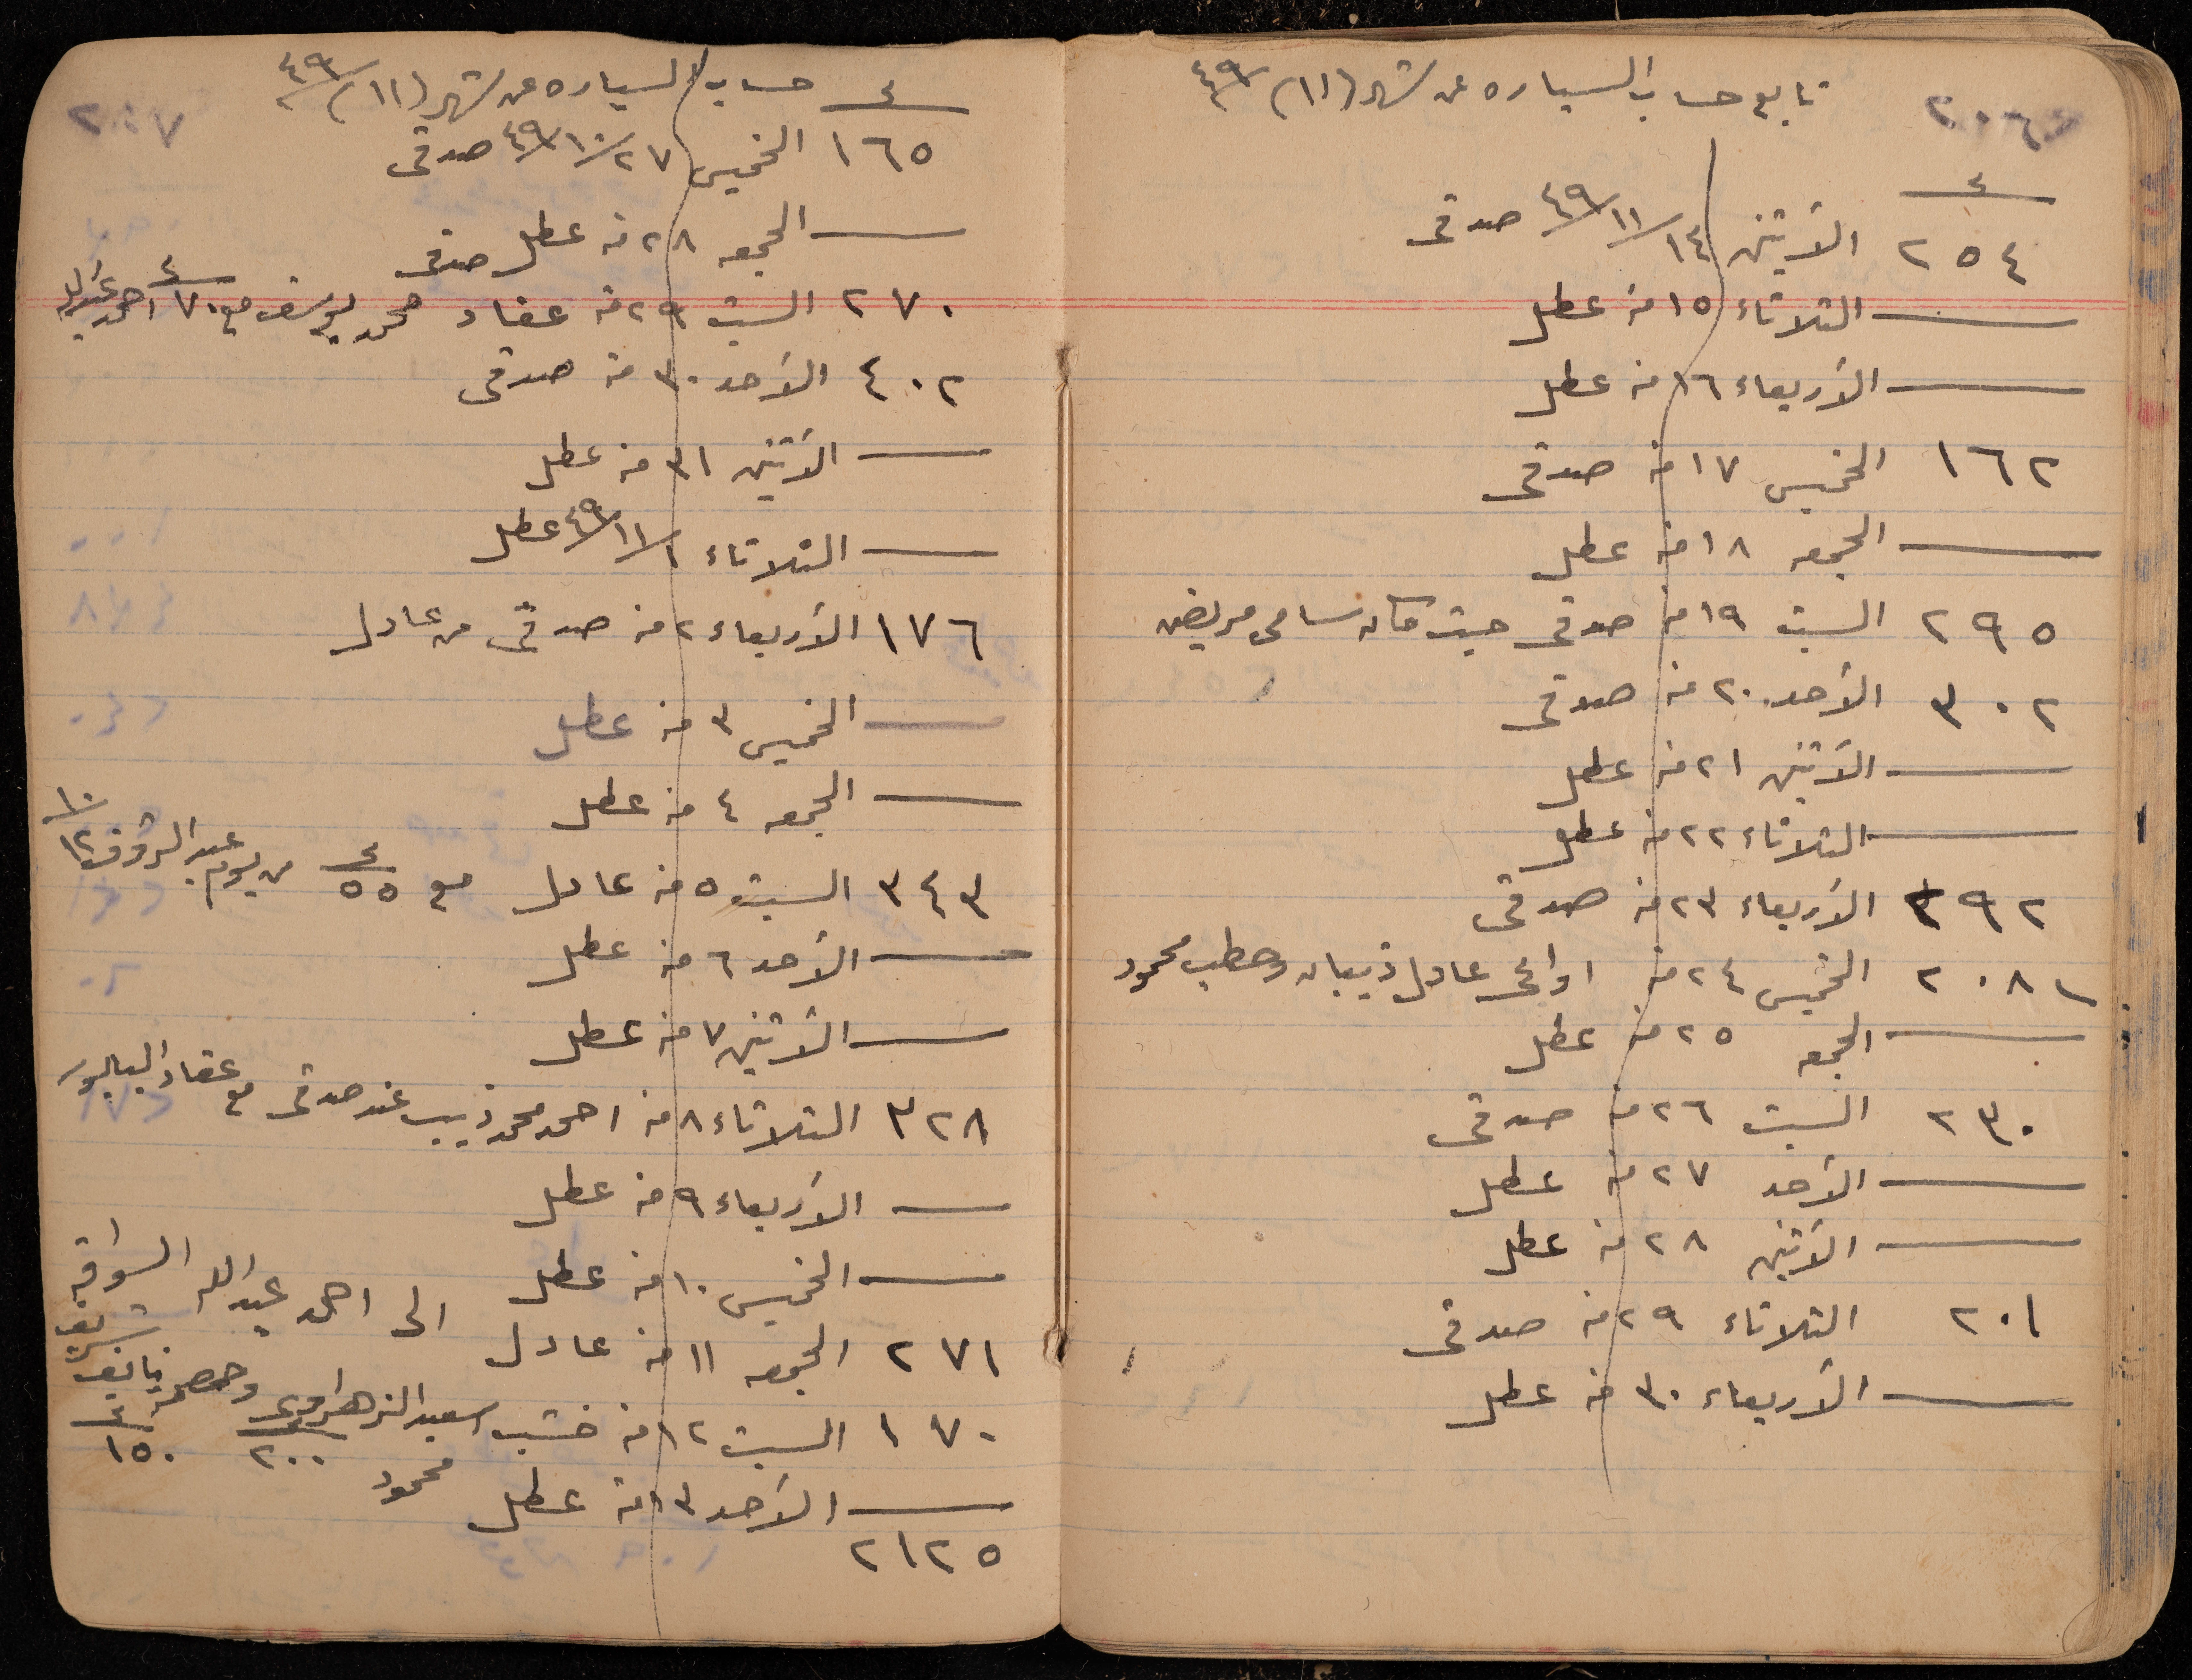 تابع حساب السياره عن شهر (١١) ٤٩
٢٥٤ الأثنين ١٤/١١/٤٩ صدقى
الثلاثاء ١٥ منه عطل
الأربعاء ١٦ منه عطل
١٦٢ الخميس ١٧ منه صدقى
الجمعه ١٨ منه عطل
٢٩٥ السبت ١٩ منه صدقى حيث كان سامى مريض
٣٠٢ الأحد ٢٠ منه صدقى
الأثنين ٢١ منه عطل
الثلاثاء ٢٢ منه عطل
٢٩٢ الأربعاء ٢٣ منه صدقى
٢٠٨١ الخميس ٢٤ منه عادل ذيبان وحطب محمود
الجمعه ٢٥ منه عطل
٢٣٠ السبت ٢٦ منه صدقى
الأحد ٢٧ منه عطل
الأثنين ٢٨ منه عطل
٢٠١ الثلاثاء ٢٩ منه صدقى
الأربعاء ٣٠ منه عطل
حساب السياره عن شهر (١١) ٤٩
١٦٥ الخميس ٢٧/١٠/٤٩ صدقى
الجمعه ٢٨ منه عطل صدقى
٢٧٠ السبت ٢٩ منه عقاد محمد يوسف مع ٧٠ احمد عبدالله
٤٠٢ الأحد ٣٠ منه صدقى
الأثنين ٣١ منه عطل
الثلاثاء ١/١١/٤٩ عطل
١٧٦ الأربعاء ٢ منه صدقى من عادل
الخميس ٣ منه عطل
الجمعه ٤ منه عطل
٣٤٣ السبت ٥ منه عادل مع ٥٥ من يوم عبد الرؤوف ١٢/١٠
الأحد ٦ منه عطل
الأثنين ٧ منه عطل
٣٢٨ الثلاثاء ٨ منه احمد محمد ذيب عند صدقى مع عقاد
الأربعاء ٩ منه عطل
الخميس ١٠ منه عطل
٢٧١ الجمعه ١١ منه عادل الى احمد عبدالله
١٧٠ السبت ١٢ منه خشب سعيد الزهراوى ٢٠٠ محمود ١٥٠
الأحد ١٣ منه عطل
٢١٢٥